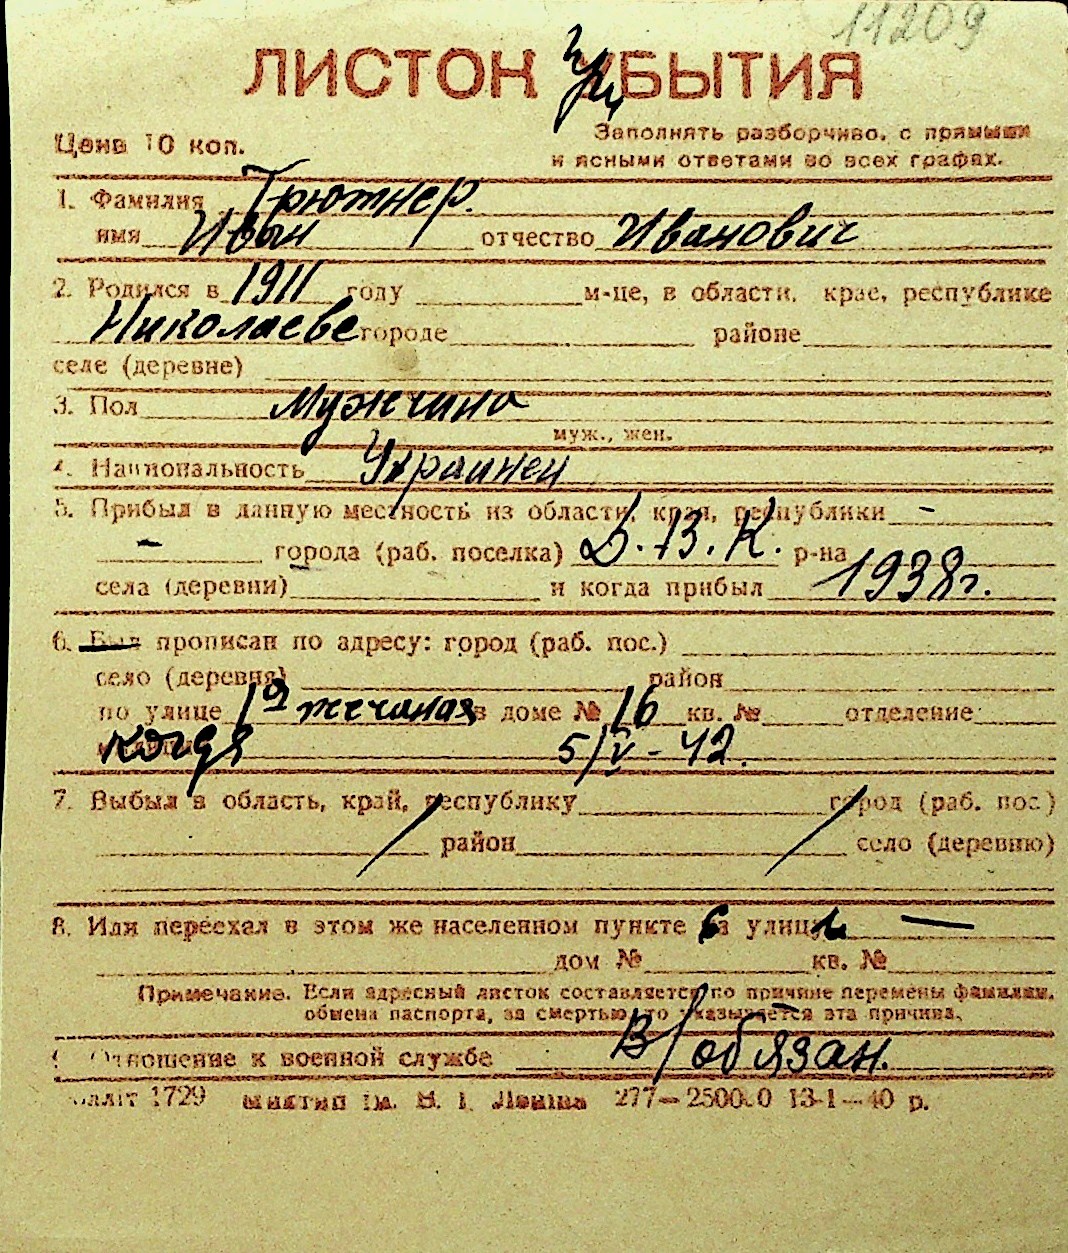 11209
ЛИСТОК УБЫТИЯ
Цена 10 коп.
Заполнять разборчиво, с прямыми
и ясными ответами во всех графах.
1. Фамилия Грютнер.
имя Иван отчество Иванович
2. Родился в 1911 году м-це, в области, крае, республике
Николаеве городе районе
селе (деревне)
3. Пол Мужчина
муж., жен.
4. Национальность Украинец
5. Прибыл в данную местность из области, края, республики -
- города (раб. поселка) Д. В. К. р-на
села (деревни) и когда прибыл 1938 г.
6. Был прописан по адресу: город (раб. пос.)
село (деревня) район
по улице 1я в доме № 16 кв. № отделение
когда 5/V-42.
7. Выбыл в область, край, республику город (раб. пос.)
район село (деревню)
8. Или переехал в этом же населенном пункте улицы —
дом № кв. №
Примечание. Если адресный листок составляется по причине перемены фамилии,
обмена паспорта, за смертью, то указывается эта причина.
9. Отношение к военной службе В/обязан.
1729 ім. В. І. Леніна 277—25000 13-1—40 р.